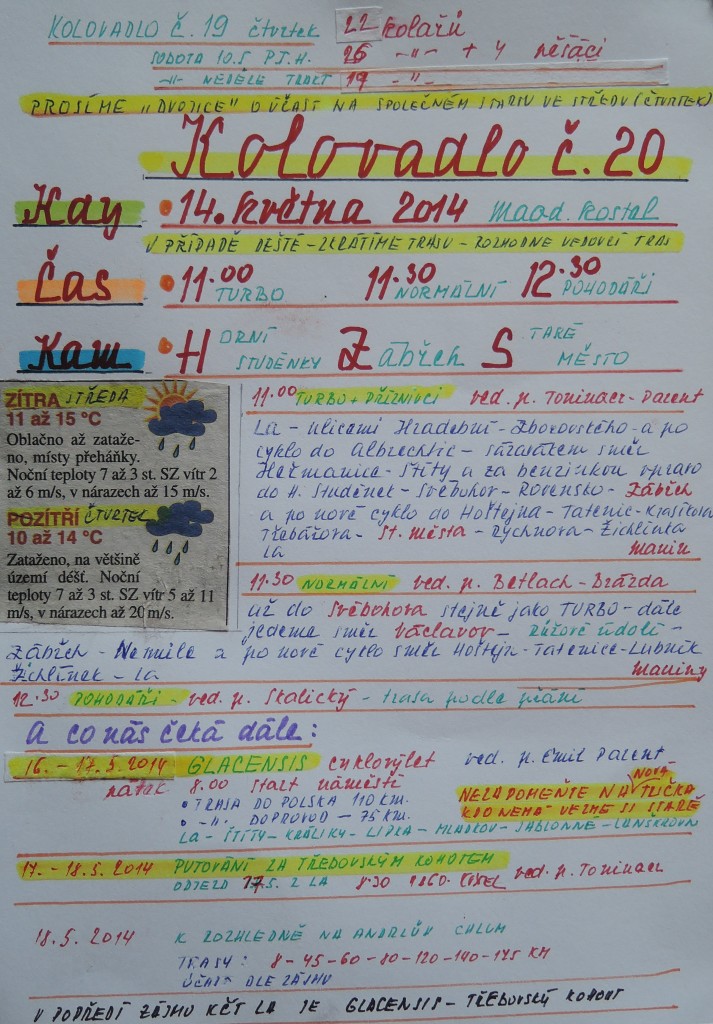 KOLOVADLO Č. 19 čtvrtek 22 kolařů
SOBOTA 10.5 P.T.H. 26 -"- + 4 pěšáci
-"- NEDĚLE TRAKT 19 -"-
PROSÍME „DVOJICE" O ÚČAST NA SPOLEČNÉM STARTU VE STŘEDU (ČTVRTEK)
Kolovadlo č. 20
Kdy • 14. května 2014 Maod. kostel
V PŘÍPADĚ DEŠTĚ - ZKRÁTÍME TRASU - ROZHODNE VEDOUCÍ TRAS
Čas • 11.00 TURBO 11.30 NORMÁLNÍ 12.30 POHODÁŘI
Kam • HORNÍ STUDÉNKY Zábřeh STARÉ MĚSTO
ZÍTRA STŘEDA
11 až 15 °C
Oblačno až zataže-
no, místy přeháňky.
Noční teploty 7 až 3 st. SZ vítr 2
až 6 m/s, v nárazech až 15 m/s.
POZÍTŘÍ ČTVRTEK
10 až 14 °C
Zataženo, na většině
území déšť. Noční
teploty 7 až 3 st. SZ vítr 5 až 11
m/s, v nárazech až 20 m/s.
11.00 TURBO + PŘÍZNIVCI ved. p. Toninacr - Parent
La - ulicemi Hradební - Zborovského - a po
cyklo do Albrechtic - sázavátem směr
Heřmanice - Štíty a za benzinkou vpravo
do H. Studének - Svébohov - ROVENSKO - Zábřeh
a po nové cyklo do Hoštejna - Tatenic - Krasíkova
Třebařova - St. města - Rychnova - Žichlínka
La Maniny
11.30 NORMÁLNÍ ved. p. Betlach - Drázda
až do Svébohova stejně jako TURBO - dále
jedeme směr Václavov - Růžové údolí -
Zábřeh - Nemile a po nové cyklo směr Hoštejn - Tatenice - Lubník
Žichlínek - La Maniny
12.30 POHODÁŘI - ved. p. Skalický - trasa podle přání
A co nás čeká dále:
16. - 17.5.2014 GLACENSIS cyklovýlet ved. p. Emil Parent
pátek 8.00 start náměstí
• TRASA DO POLSKA 110 KM.
• -"- DOPROVOD - 75 KM.
NEZAPOMEŇTE NA NOVÁ TRIČKA
KDO NEMÁ VEZME SI STARÉ
LA - ŠTÍTY - KRÁLÍKY - LIPKA - MLADKOV - JABLONNÉ - LANŠKROUN
17. - 18.5.2014 PUTOVÁNÍ ZA TŘEBOVSKÝM KOHOTEM
ODJEZD 17.5. Z LA 8.30 ved. p. Toninacr
18.5.2014 K ROZHLEDNĚ NA ANDRLŮV CHLUM
TRASY: 8 - 45 - 60 - 80 - 120 - 140 - 175 KM
ÚČAST DLE ZÁJMU
V POPŘEDÍ ZÁJMU KČT LA JE GLACENSIS - TŘEBOVSKÝ KOHOUT